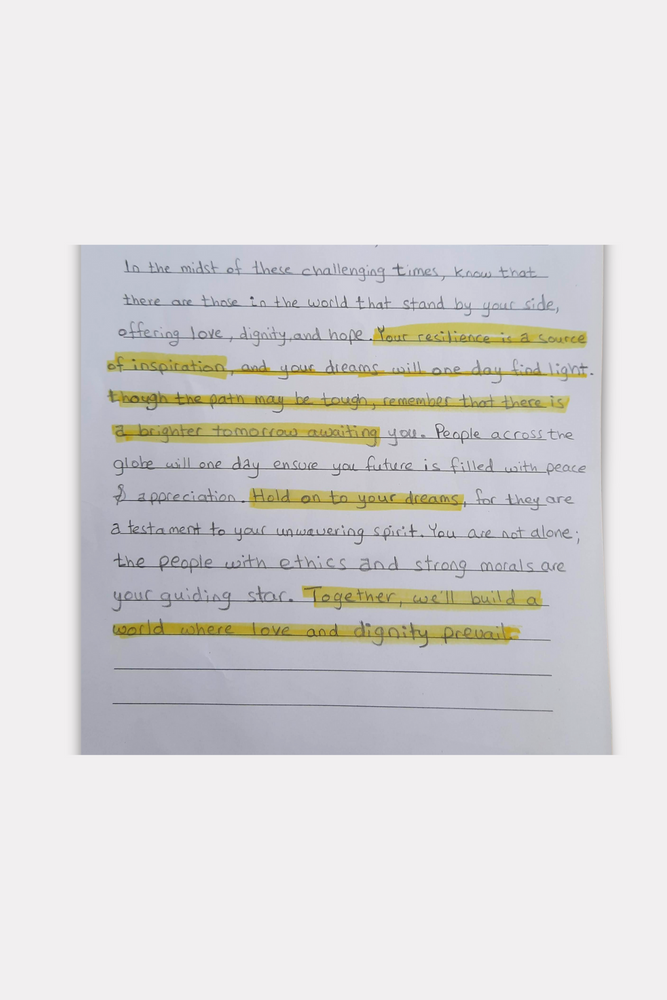 In the midst of these challenging times, know that
there are those in the world that stand by your side,
offering love, dignity, and hope. Your resilience is a source
of inspiration, and your dreams will one day find light.
though the path may be tough, remember that there is
a brighter tomorrow awaiting you. People across the
globe will one day ensure you future is filled with peace
& appreciation. Hold on to your dreams, for they are
a testament to your unwavering spirit. You are not alone;
the people with ethics and strong morals are
your guiding star. Together, we'll build a
world where love and dignity prevail.